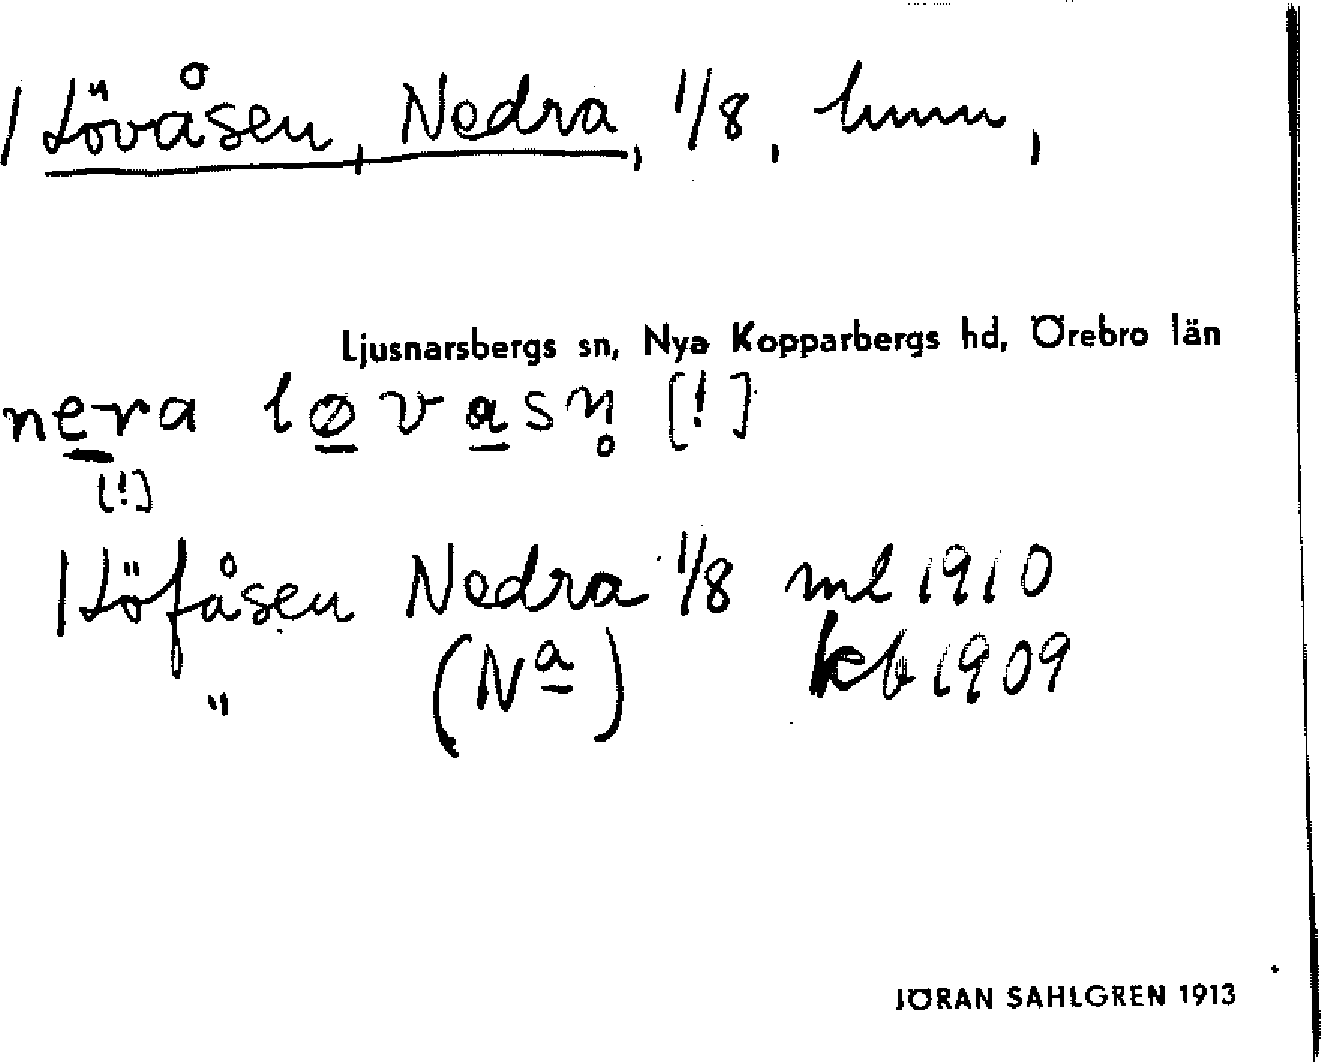 1 Lövåsen, Nedra, 1/8, hmn,
Ljusnarsbergs sn, Nya Kopparbergs hd, Örebro län
nera løvasn̥ [!]
[!]
1 Löfåsen Nedra 1/8 ml 1910
" (Na) kb 1909
JÖRAN SAHLGREN 1913